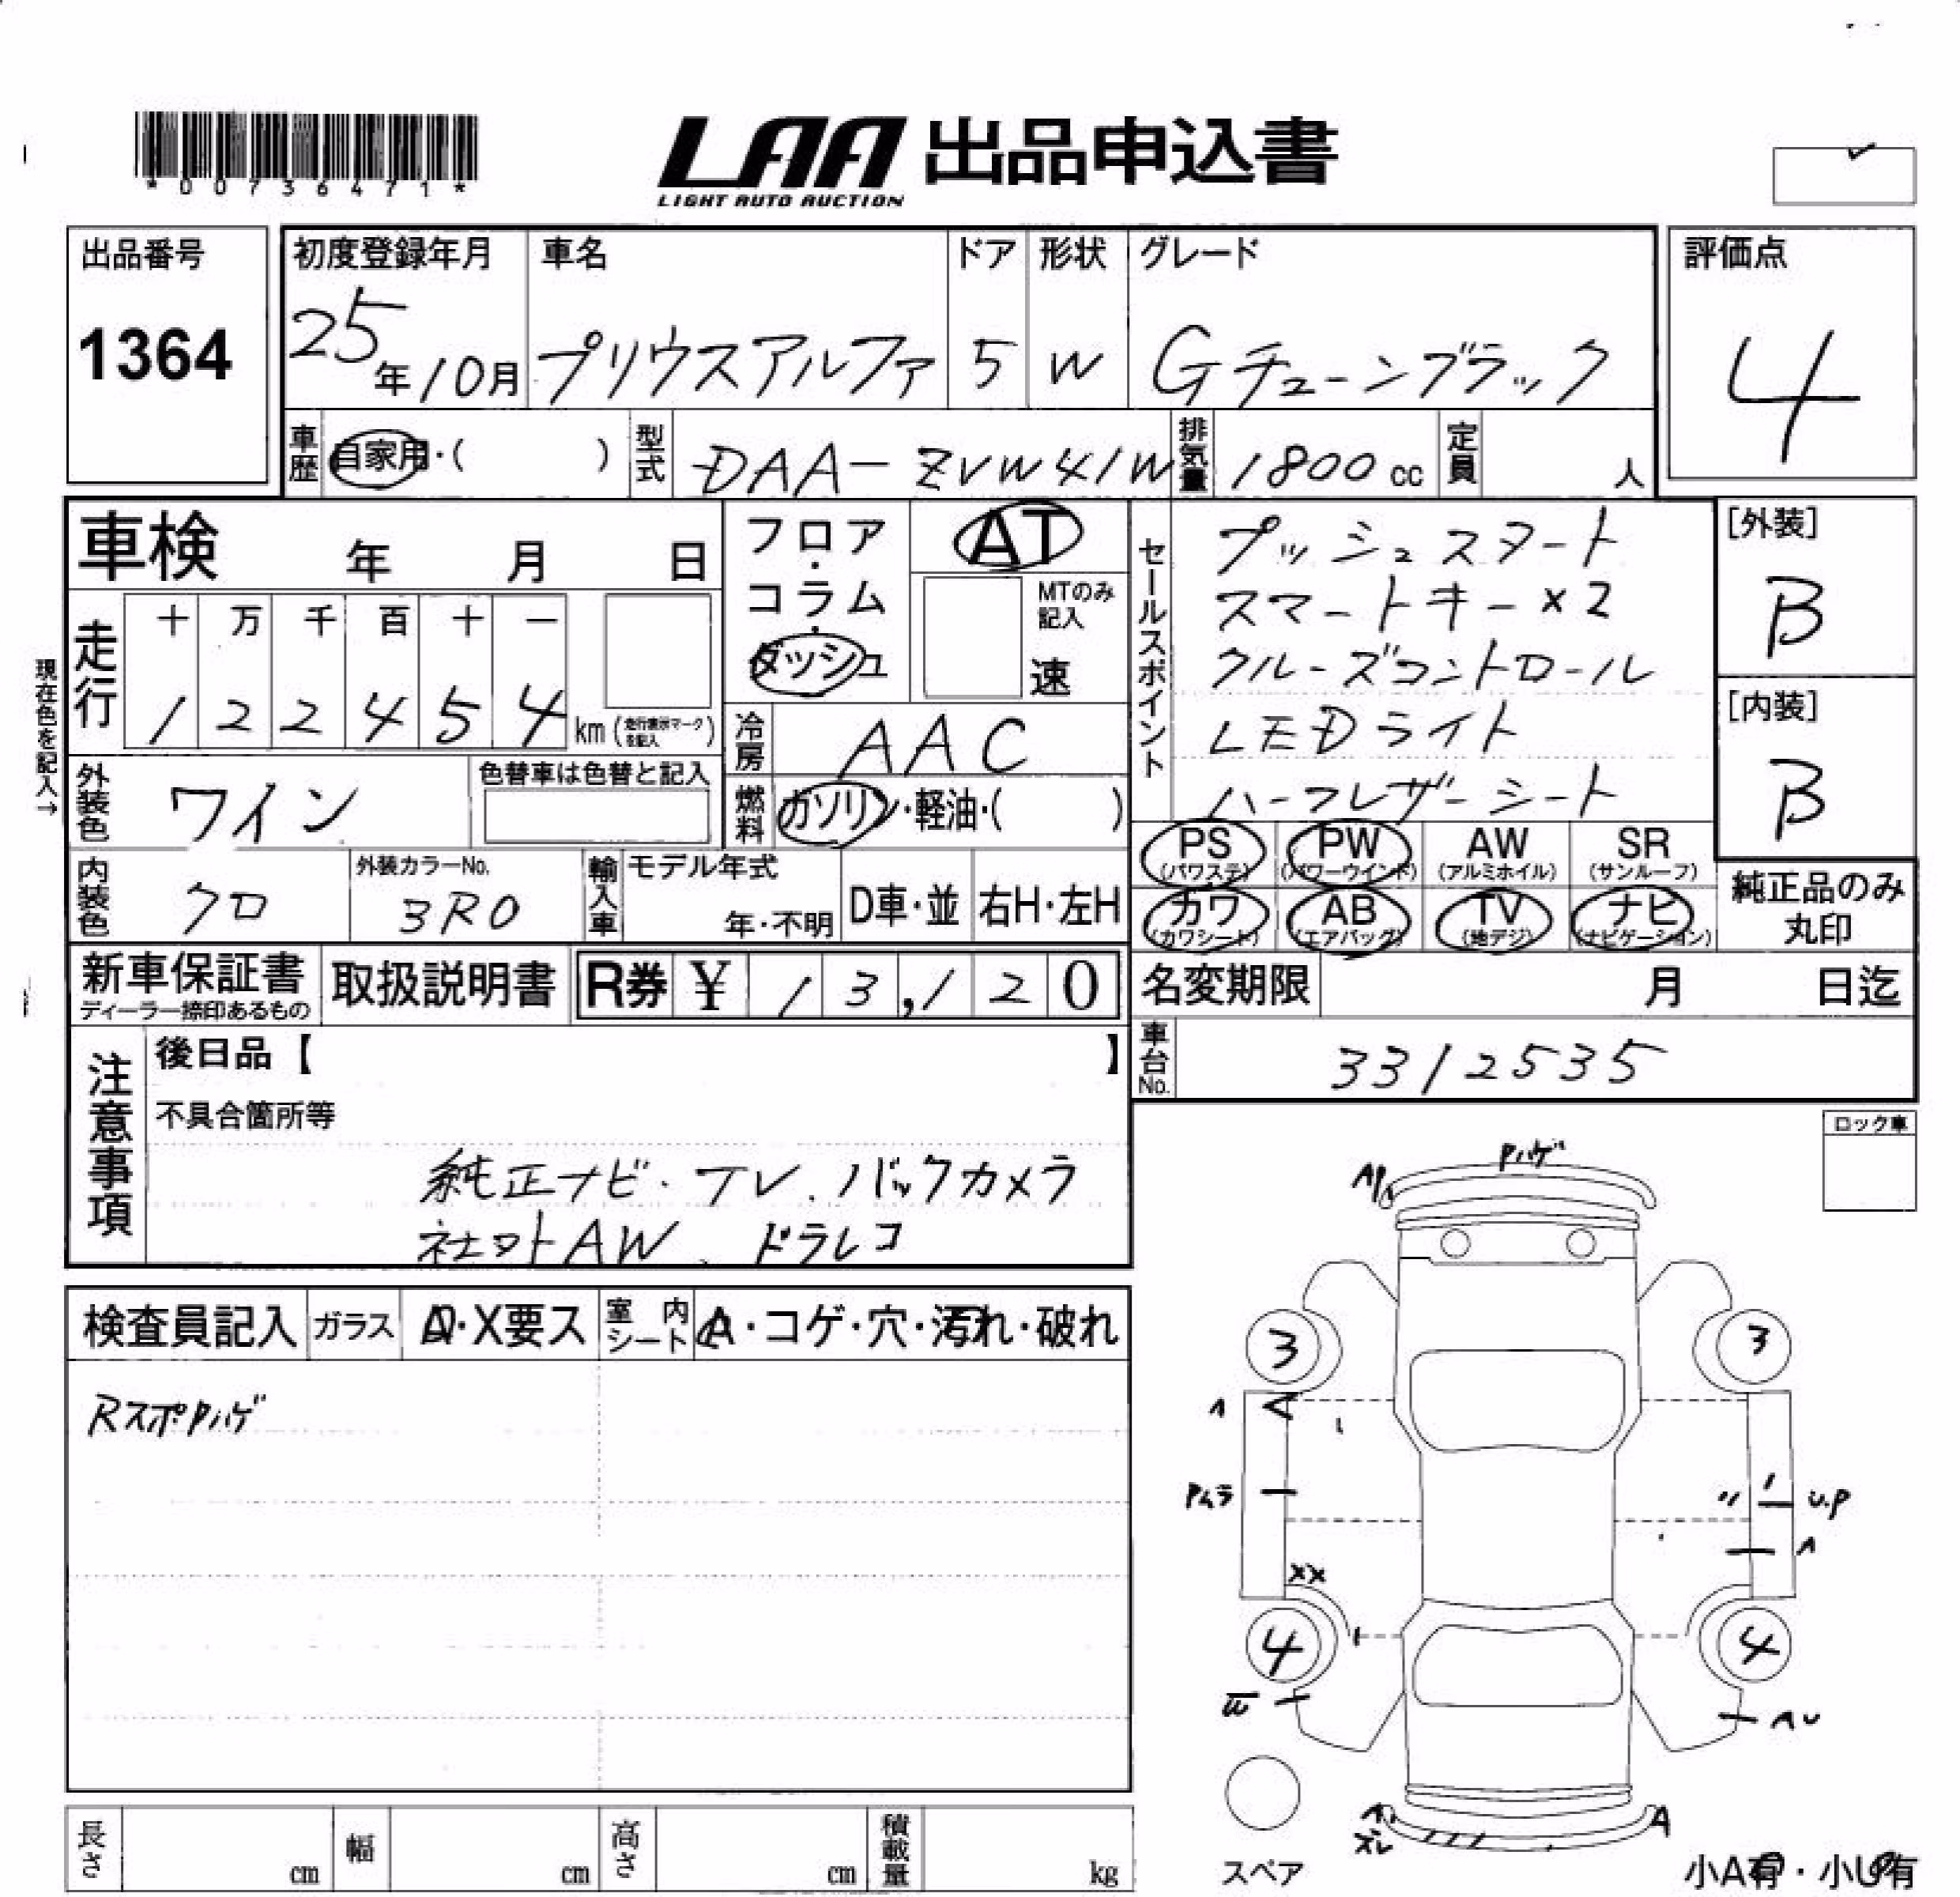 *00736471*
LAA 出品申込書
LIGHT AUTO AUCTION
出品番号
1364
初度登録年月 車名 ドア 形状 グレード
25年10月 プリウスアルファ 5 W Gチューンブラック
評価点
4
車歴 自家用・( ) 型式 DAA-ZVW41W 排気量 1800cc 定員 人
車検 年 月 日
フロア・コラム・ダッシュ
AT
MTのみ記入
速
走行 十 万 千 百 十 一
1 2 2 4 5 4 km (走行表示マークを記入)
現在色を記入→
冷房 AAC
外装色 ワイン 色替車は色替と記入
燃料 ガソリン・軽油・( )
内装色 クロ 外装カラーNo. 3R0 輸入車 モデル年式 年・不明 D車・並 右H・左H
セールスポイント
プッシュスタート
スマートキー×2
クルーズコントロール
LEDライト
ハーフレザーシート
[外装]
B
[内装]
B
PS (パワステ) PW (パワーウインド) AW (アルミホイル) SR (サンルーフ)
カワ (カワシート) AB (エアバッグ) TV (地デジ) ナビ (ナビゲーション)
純正品のみ丸印
新車保証書 ディーラー捺印あるもの 取扱説明書 R券 ¥ 13,120
名変期限 月 日迄
車台No. 3312535
注意事項
後日品【 】
不具合箇所等
純正ナビ・TV、バックカメラ
社外AW、ドラレコ
検査員記入 ガラス A・X要ス 室内シート A・コゲ・穴・汚れ・破れ
RスポPハゲ
ロック車
Pハゲ
AP
3 3
A
Pムラ
U.P
A
XX
4 4
W
AU
A
ズレ
A
スペア
小A有・小U有
長さ cm 幅 cm 高さ cm 積載量 kg